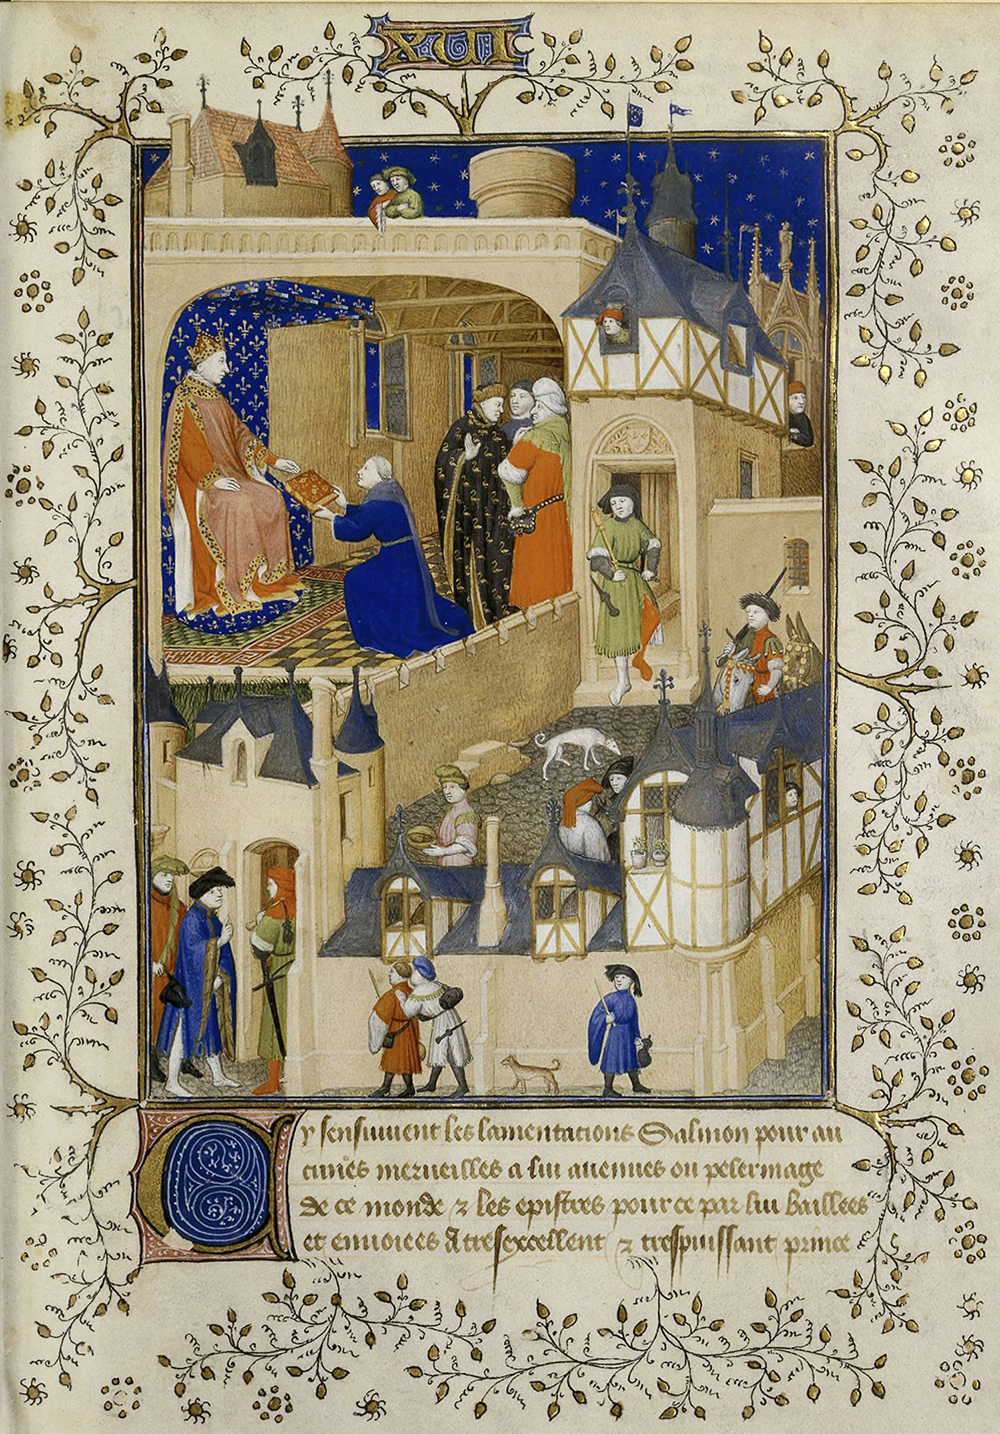 XVII
Cy sensuiuent les lamentacions Salmon pour au
cunes merueilles a lui auenues ou pelerinage
de ce monde ⁊ les epistres pour ce par lui baillees
et enuoiees A tresexcellent ⁊ trespuissant prince